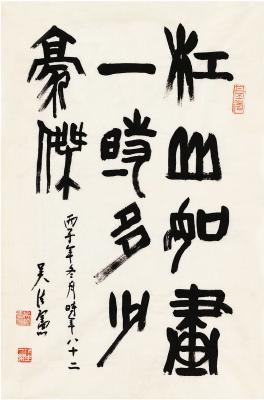 江山如畫
一時多少
豪傑
丙子年冬月時年八十二
吳法憲